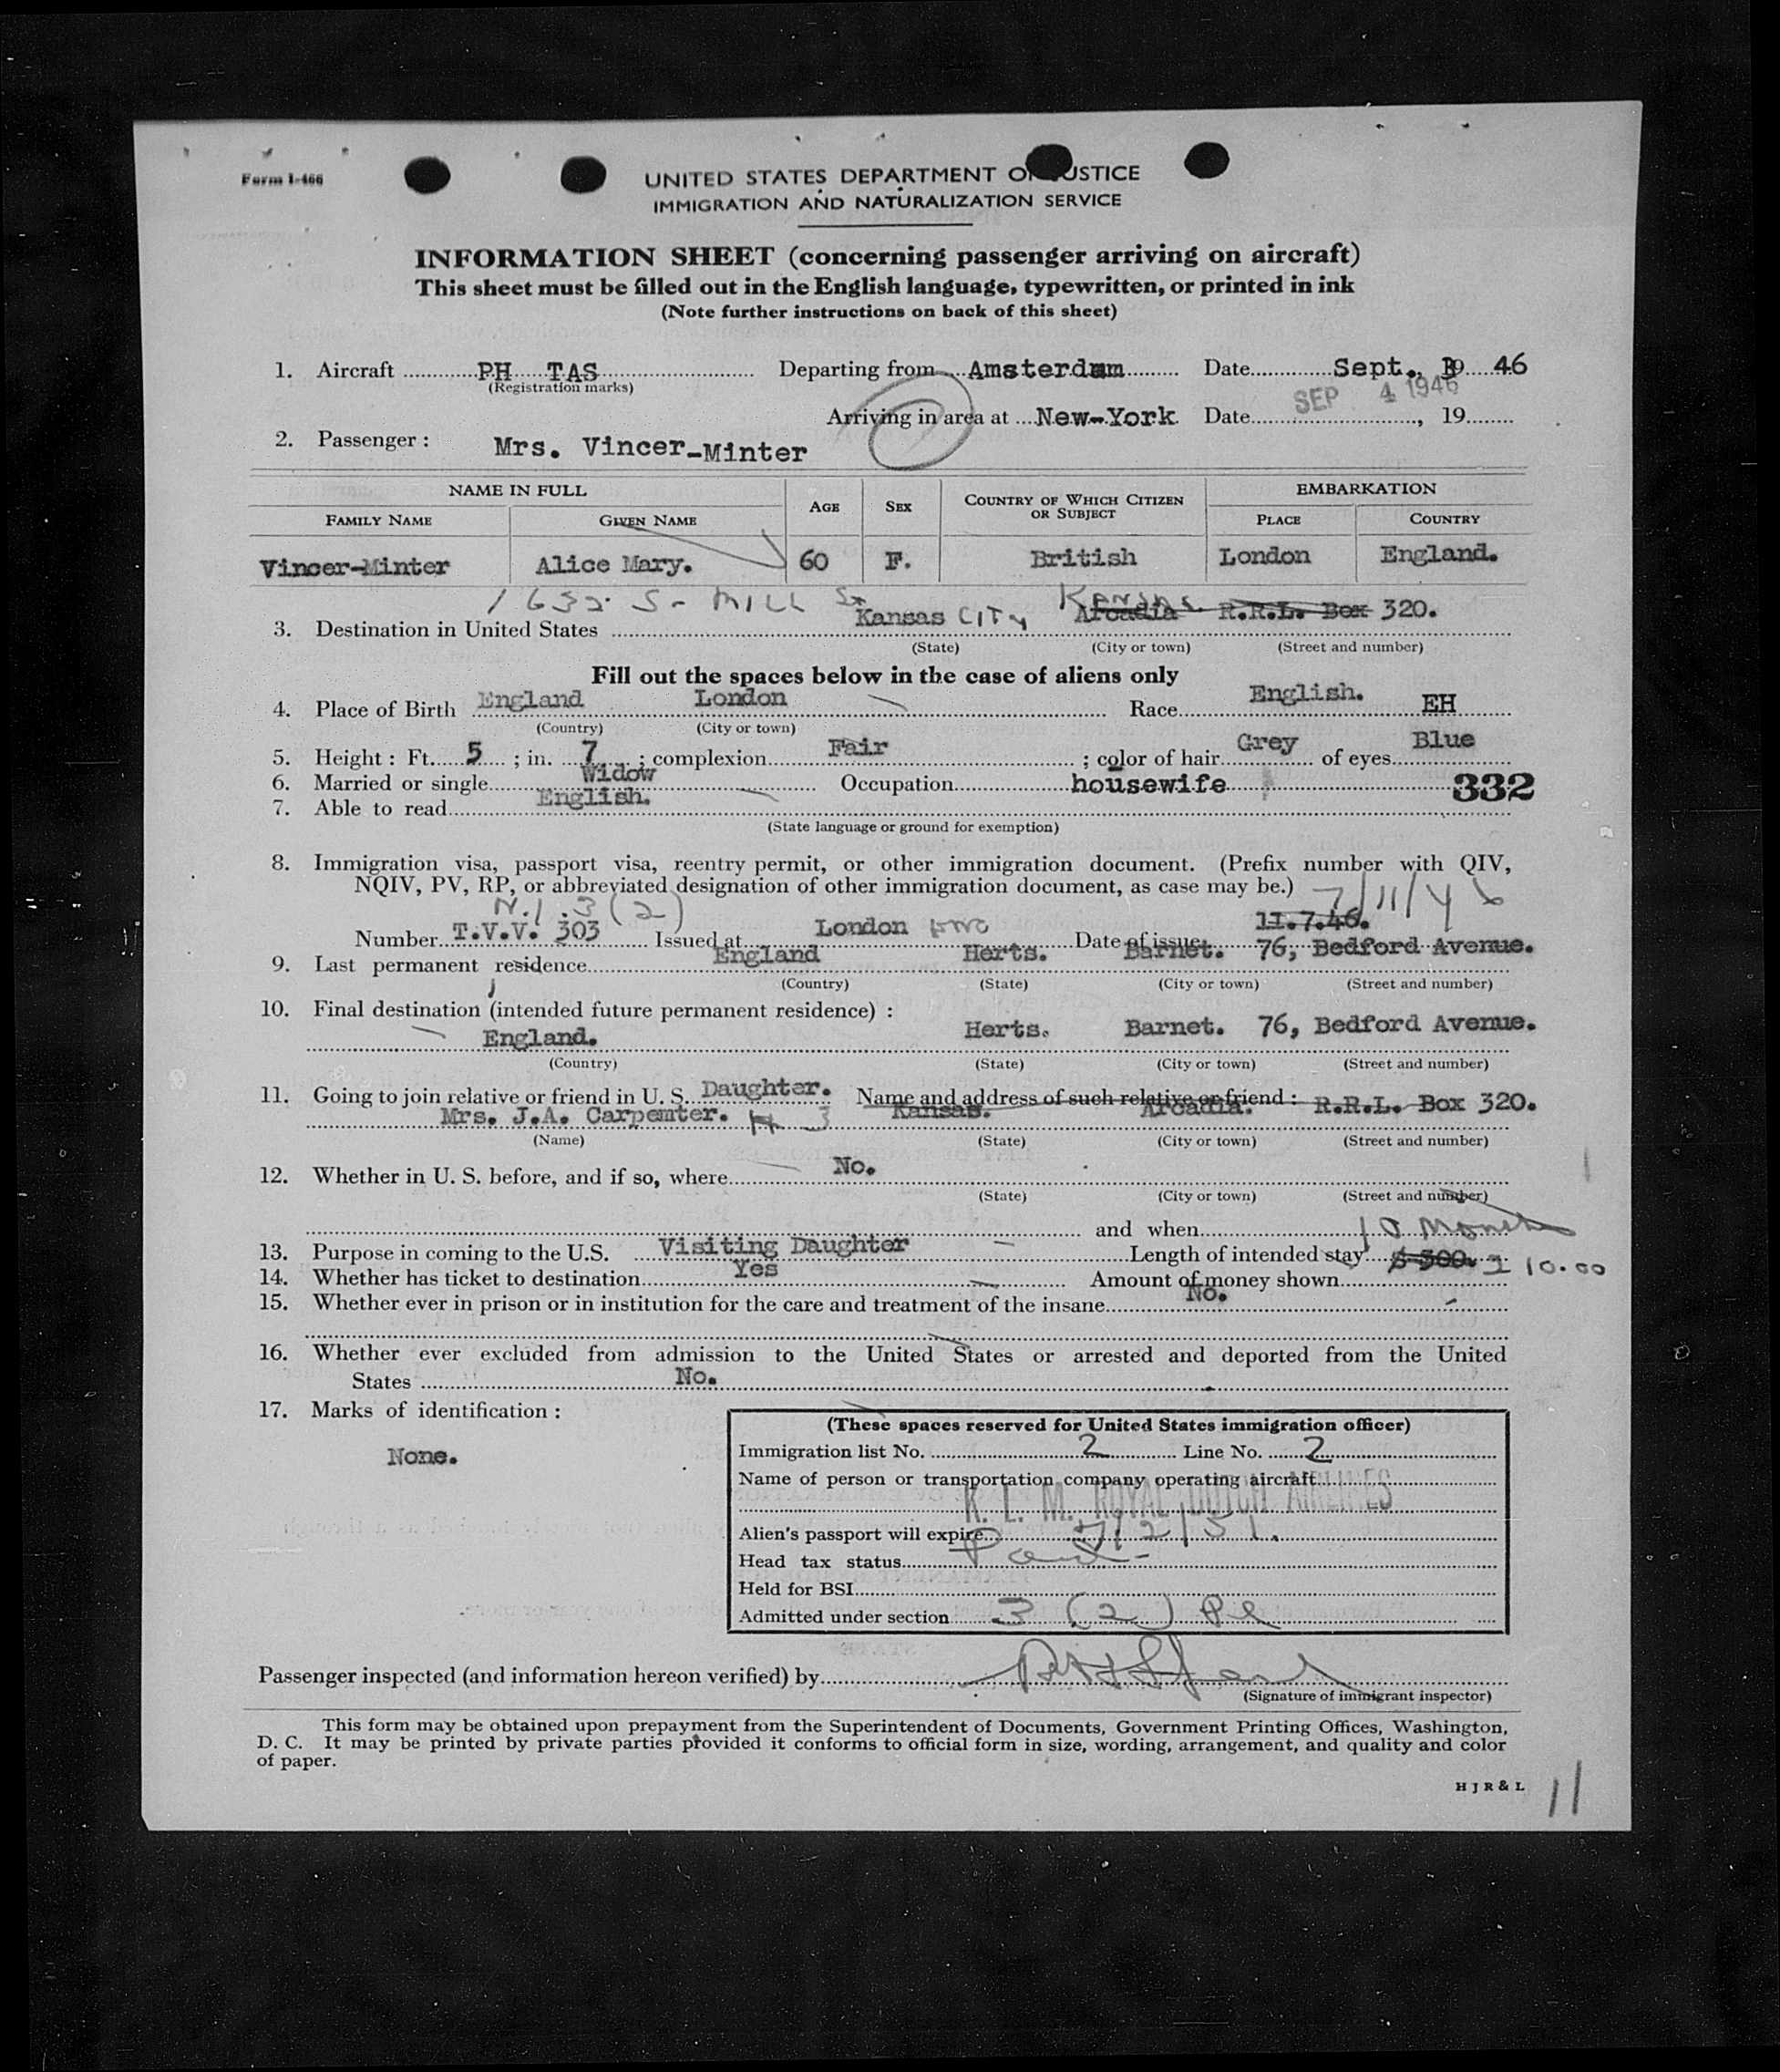 Form I-466
UNITED STATES DEPARTMENT OF JUSTICE
IMMIGRATION AND NATURALIZATION SERVICE
INFORMATION SHEET (concerning passenger arriving on aircraft)
This sheet must be filled out in the English language, typewritten, or printed in ink
(Note further instructions on back of this sheet)
1. Aircraft PH TAS Departing from Amsterdam Date Sept., 19 46
(Registration marks)
SEP 4 1946
Arriving in area at New-York Date, 19
2. Passenger : Mrs. Vincer-Minter
NAME IN FULL AGE SEX COUNTRY OF WHICH CITIZEN OR SUBJECT EMBARKATION
FAMILY NAME GIVEN NAME PLACE COUNTRY
Vincer-Minter Alice Mary. 60 F. British London England.
1632 S- MILL St Kansas
3. Destination in United States Kansas CITY Arcadia R.R.L. Box 320.
(State) (City or town) (Street and number)
Fill out the spaces below in the case of aliens only
4. Place of Birth England London Race English. EH
(Country) (City or town)
5. Height : Ft. 5 ; in. 7 ; complexion Fair ; color of hair Grey of eyes Blue
6. Married or single Widow Occupation housewife 332
7. Able to read English.
(State language or ground for exemption)
8. Immigration visa, passport visa, reentry permit, or other immigration document. (Prefix number with QIV,
NQIV, PV, RP, or abbreviated designation of other immigration document, as case may be.) 7/11/46
N.I. 3(2)
Number T.V.V. 303 Issued at London Date of issue 11.7.46.
9. Last permanent residence England Herts. Barnet. 76, Bedford Avenue.
(Country) (State) (City or town) (Street and number)
10. Final destination (intended future permanent residence) :
England. Herts. Barnet. 76, Bedford Avenue.
(Country) (State) (City or town) (Street and number)
11. Going to join relative or friend in U. S. Daughter. Name and address of such relative or friend :
Mrs. J.A. Carpemter. # 3 Kansas. Arcadia. R.R.L. Box 320.
(Name) (State) (City or town) (Street and number)
12. Whether in U. S. before, and if so, where No.
(State) (City or town) (Street and number)
and when
13. Purpose in coming to the U.S. Visiting Daughter Length of intended stay 10 Months
14. Whether has ticket to destination Yes Amount of money shown $ 300. 10.00
15. Whether ever in prison or in institution for the care and treatment of the insane No.
16. Whether ever excluded from admission to the United States or arrested and deported from the United
States No.
17. Marks of identification :
None.
(These spaces reserved for United States immigration officer)
Immigration list No. 2 Line No. 2
Name of person or transportation company operating aircraft
K. L. M. ROYAL DUTCH AIRLINES
Alien's passport will expire 7/2/51.
Head tax status Paid
Held for BSI
Admitted under section 3 (2)
Passenger inspected (and information hereon verified) by
(Signature of immigrant inspector)
This form may be obtained upon prepayment from the Superintendent of Documents, Government Printing Offices, Washington,
D. C. It may be printed by private parties provided it conforms to official form in size, wording, arrangement, and quality and color
of paper.
H J R & L
11